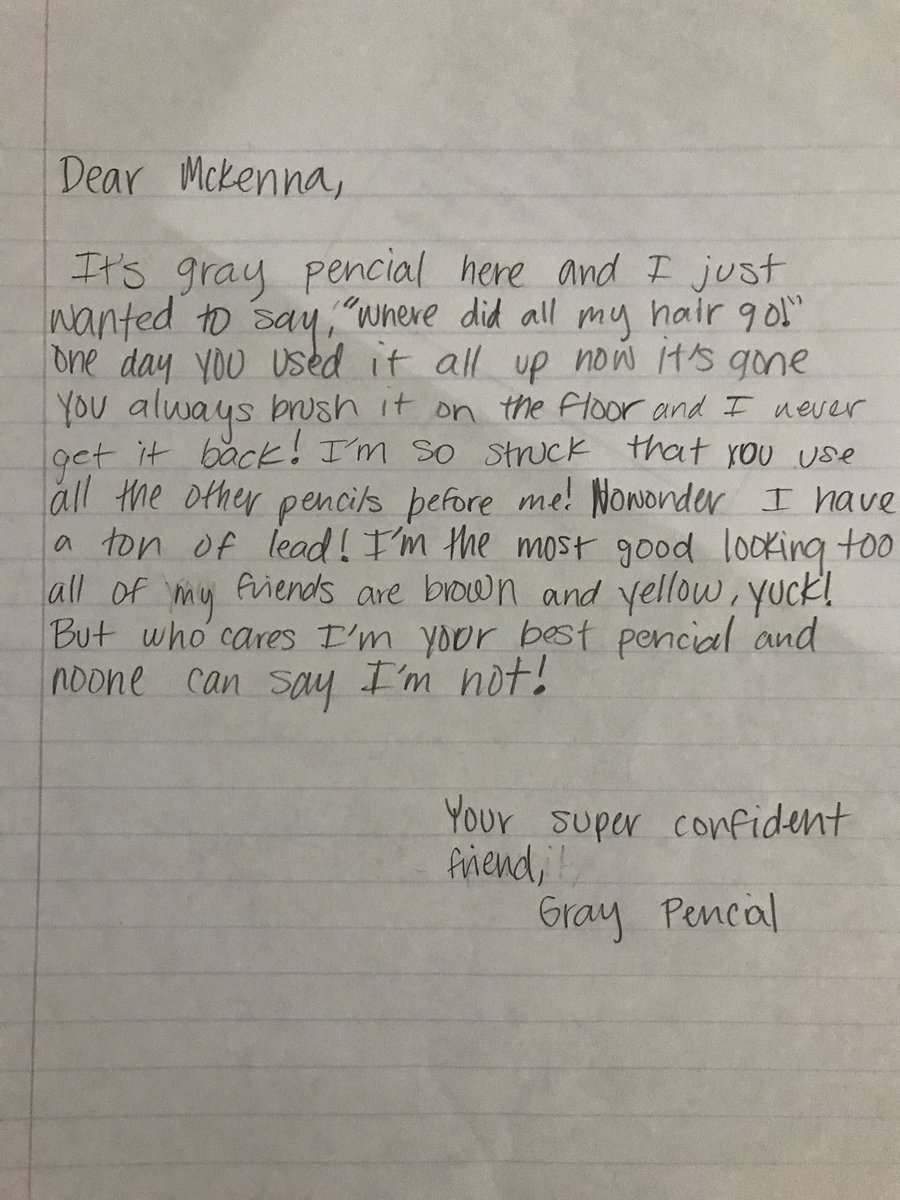 Dear Mckenna,
It's gray pencial here and I just
wanted to say, "where did all my hair go!"
one day you used it all up now it's gone
you always brush it on the floor and I never
get it back! I'm so struck that you use
all the other pencils before me! Nowonder I have
a ton of lead! I'm the most good looking too
all of my friends are brown and yellow, yuck!
But who cares I'm your best pencial and
noone can say I'm not!
Your super confident
friend,
Gray Pencial